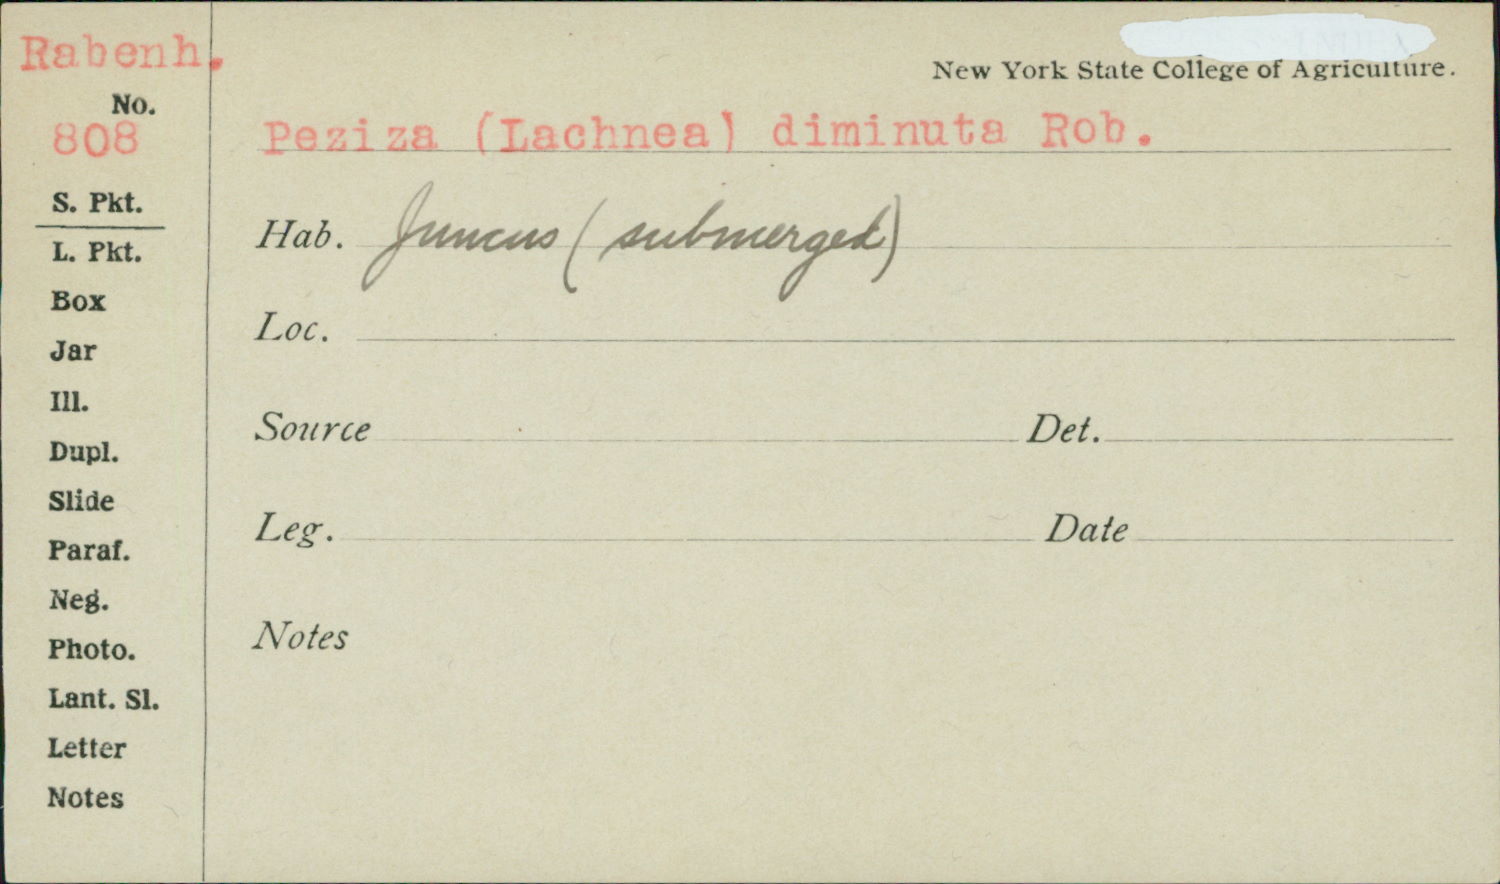 Rabenh.
New York State College of Agriculture.
No.
808
Peziza (Lachnea) diminuta Rob.
S. Pkt.
L. Pkt.
Box
Jar
Ill.
Dupl.
Slide
Paraf.
Neg.
Photo.
Lant. Sl.
Letter
Notes
Hab. Juncus (submerged)
Loc.
Source Det.
Leg. Date
Notes